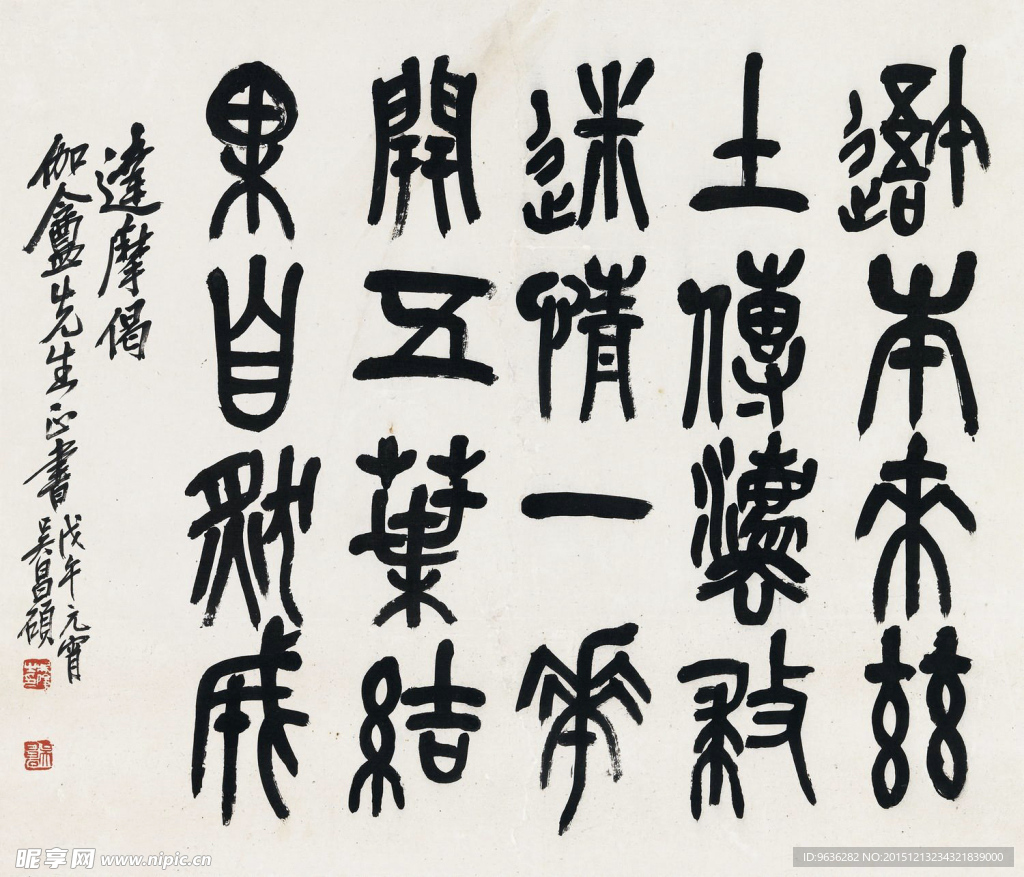 吾本來茲
土傳灋救
迷情一華
開五葉結
果自然成
達摩偈
伽盦先生正書戊午元宵
吳昌碩
昵享网 www.nipic.cn
ID:9636282 NO:20151213234321839000